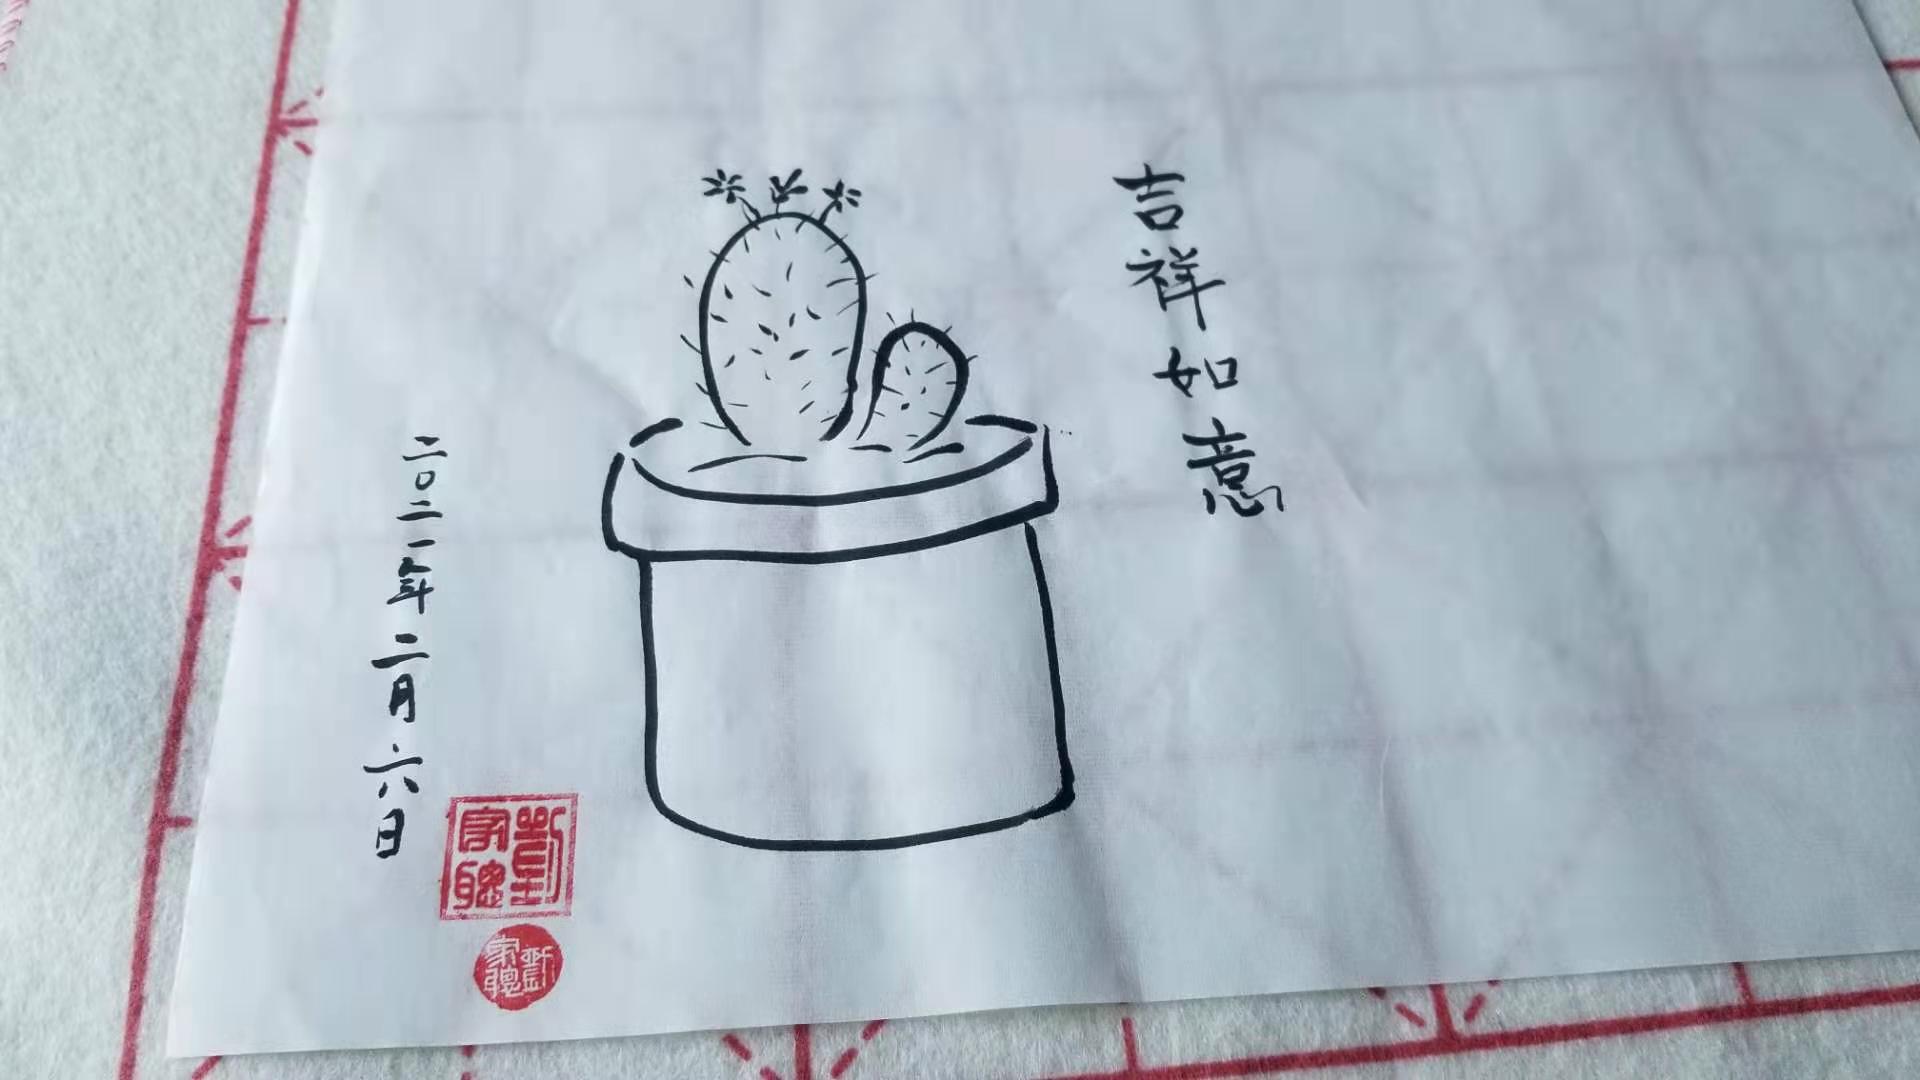 吉祥如意
二〇二一年二月六日
劉家聰
劉家聰